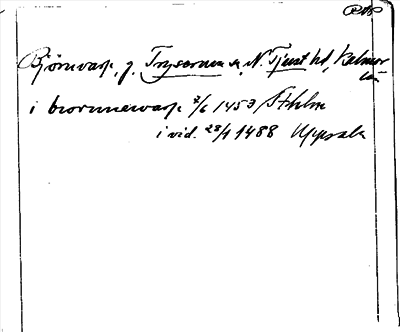 Björnvasp, g. Tryserum sn, N. Tjust hd, Kalmar
län
i biornnewasp 2/6 1453 Sthlm
i vid. 28/1 1488 Uppsala